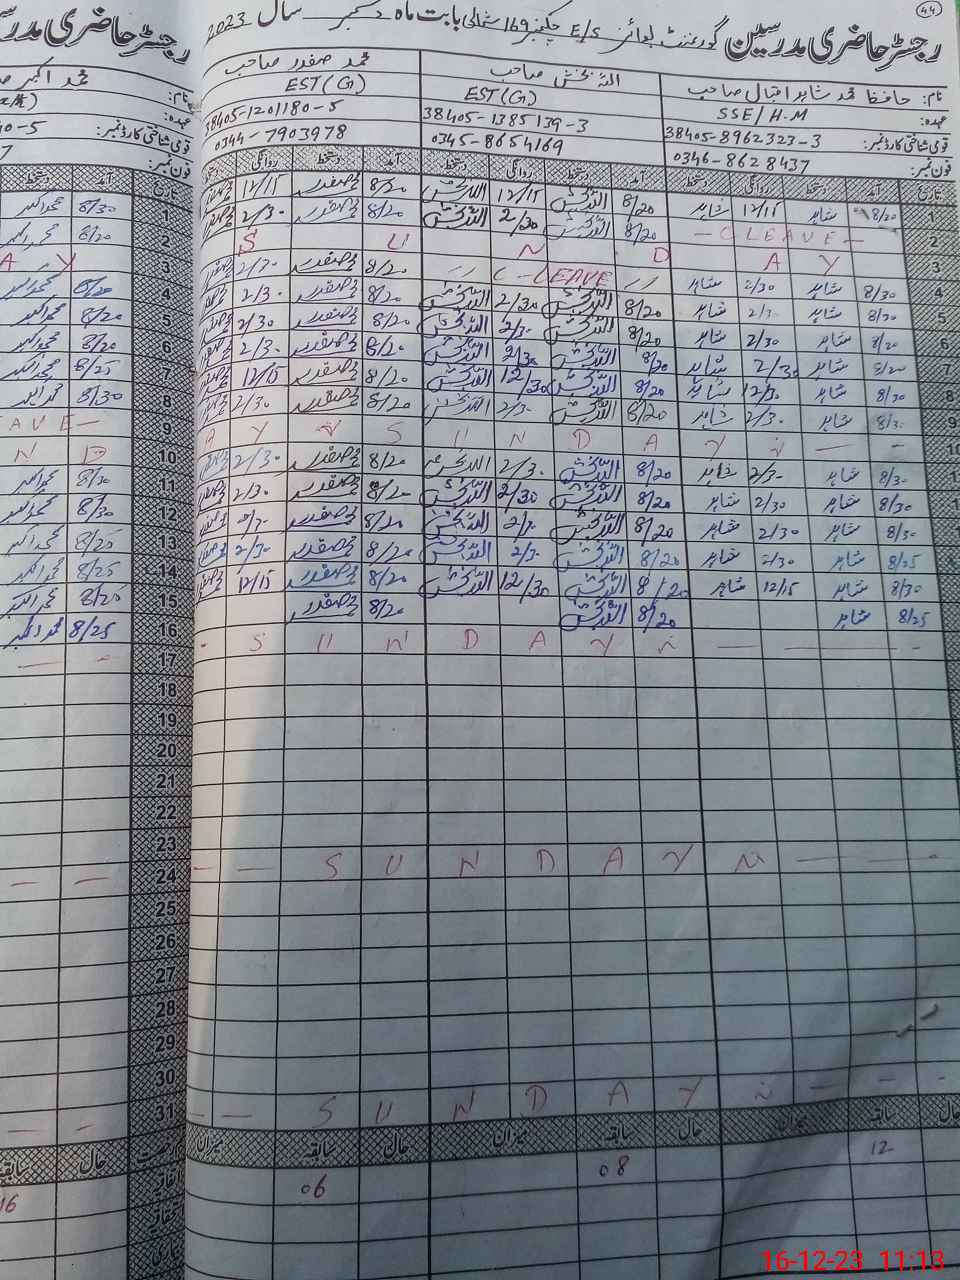 44
رجسٹر حاضری مدرسین گورنمنٹ بوائز E/S چکنمبر 169 شمالی بابت ماہ دسمبر سال 2023
نام: حافظ محمد شاہد اقبال صاحب اللہ بخش صاحب محمد صفدر صاحب
عہدہ: SSE/H.M EST(G) EST(G)
قومی شناختی کارڈ نمبر: 38405-8962323-3 38405-1385139-3 38405-1201180-5
فون نمبر: 0346-8628437 0345-8654169 0344-7903978
تاریخ آمد دستخط روانگی دستخط آمد دستخط روانگی دستخط آمد دستخط روانگی دستخط
1 8/20 شاہد 12/15 شاہد 8/20 اللہ بخش 12/15 اللہ بخش 8/20 محمد صفدر 12/15
2 — C LEAVE — 8/20 اللہ بخش 2/30 اللہ بخش 8/20 محمد صفدر 2/30
3 S U N D A Y
4 8/30 شاہد 2/30 شاہد // C-LEAVE // 8/20 محمد صفدر 2/30
5 8/30 شاہد 2/30 شاہد 8/20 اللہ بخش 2/30 اللہ بخش 8/20 محمد صفدر 2/30
6 8/20 شاہد 2/30 شاہد 8/20 اللہ بخش 2/30 اللہ بخش 8/20 محمد صفدر 2/30
7 8/20 شاہد 2/30 شاہد 8/20 اللہ بخش 2/30 اللہ بخش 8/20 محمد صفدر 2/30
8 8/30 شاہد 12/30 شاہد 8/20 اللہ بخش 12/30 اللہ بخش 8/20 محمد صفدر 12/15
9 8/30 شاہد 2/30 شاہد 8/20 اللہ بخش 2/30 اللہ بخش 8/20 محمد صفدر 2/30
10 A Y S U N D A Y
11 8/30 شاہد 2/30 شاہد 8/20 اللہ بخش 2/30 اللہ بخش 8/20 محمد صفدر 2/30
12 8/30 شاہد 2/30 شاہد 8/20 اللہ بخش 2/30 اللہ بخش 8/20 محمد صفدر 2/30
13 8/30 شاہد 2/30 شاہد 8/20 اللہ بخش 2/30 اللہ بخش 8/20 محمد صفدر
14 8/25 شاہد 2/30 شاہد 8/20 اللہ بخش 2/30 اللہ بخش 8/20 محمد صفدر 2/30
15 8/30 شاہد 12/15 شاہد 8/20 اللہ بخش 12/30 اللہ بخش 8/20 محمد صفدر 12/15
16 8/25 شاہد 8/20 اللہ بخش 8/20 محمد صفدر
17 S U N D A Y
18
19
20
21
22
23
24 S U N D A Y
25
26
27
28
29
30
31 S U N D A Y
سابقہ حال میزان سابقہ حال میزان سابقہ حال میزان
12 08 06
رجسٹر حاضری مدرسین
محمد اکبر
8/30 محمد اکبر
8/20 محمد اکبر
A Y
8/20 محمد اکبر
8/20 محمد اکبر
8/20 محمد اکبر
8/25 محمد اکبر
8/30 محمد اکبر
AVE—
N D
8/30 محمد اکبر
8/30 محمد اکبر
8/25 محمد اکبر
8/25 محمد اکبر
8/20 محمد اکبر
8/25 محمد اکبر
حال سابقہ
16
16-12-23 11:13